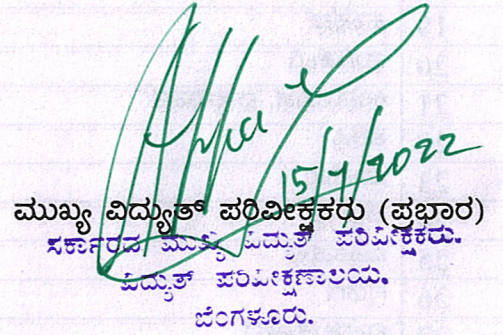 15/7/2022
ಮುಖ್ಯ ವಿದ್ಯುತ್ ಪರಿವೀಕ್ಷಕರು (ಪ್ರಭಾರ)
ಸರ್ಕಾರದ ಮುಖ್ಯ ವಿದ್ಯುತ್ ಪರಿವೀಕ್ಷಕರು.
ವಿದ್ಯುತ್ ಪರಿವೀಕ್ಷಣಾಲಯ.
ಬೆಂಗಳೂರು.